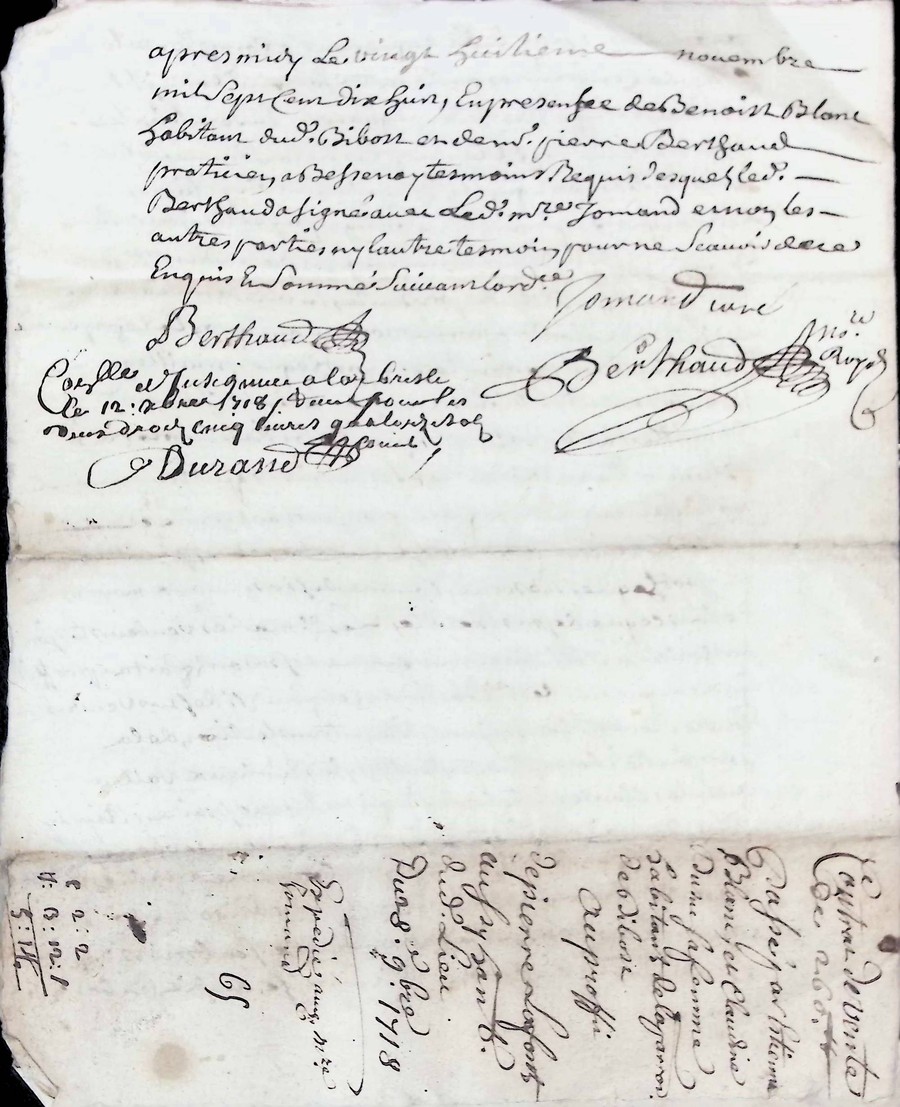 apres midy Le vingt huitieme novembre
mil Sept Cent dix huit, En presensce de Benoist Blanc
habitant dud. Bibost et de me. pierre Berthaud
praticien a Bessenay tesmoins Requis lesquels led.
Berthaud a signé avec Led. mre Jomand et non les
autres parties ny l'autre tesmoin pour ne Scavoir de ce
Enquis Et Sommé Suivant lordce
Jomand curé
Berthaud
Berthaud no.re Royal
Collé et Insinué a la bresle
le 12: xbre 1718, Receu pour les
deux droits cinq livres quatorze sols
Durand
Contrat de vente
de 260.
Passé par Estienne
Blanc, et Claudine
sa femme
habitants de
de bibost
Au proffit
de pierre Lafont
aussy hant.
dud. Lieu
Du 28. 9bre 1718
Expedié aud. sr
Jomand
65